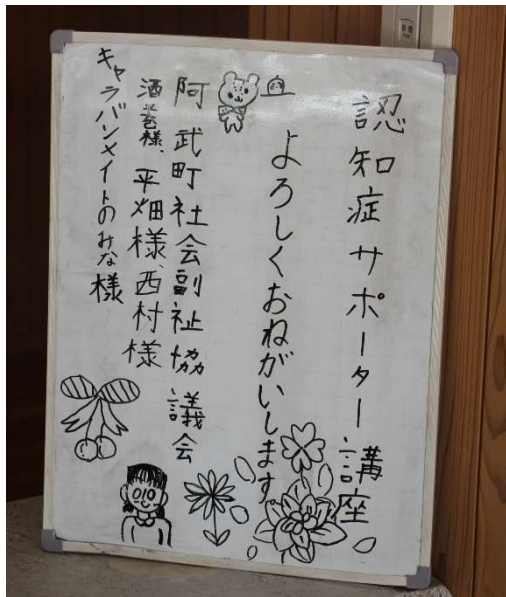 認知症サポーター講座
よろしくおねがいします。
阿武町社会副祉協議会
平畑様、西村様
キャラバンメイトのみな様